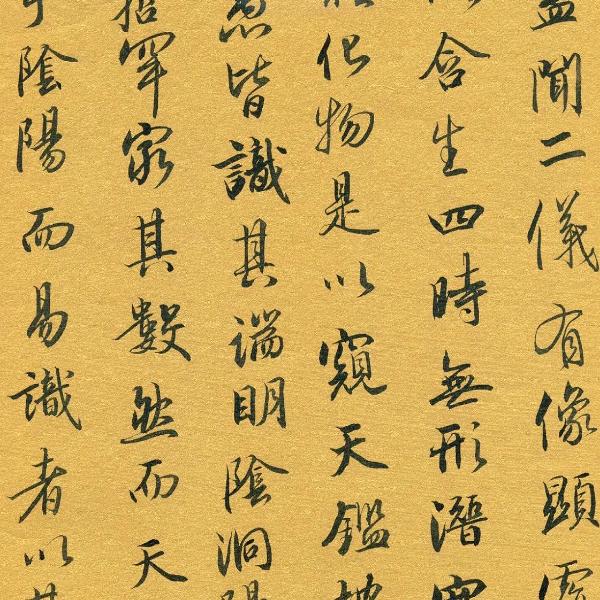 盖聞二儀有像顯
含生四時無形潛
化物是以窺天鑑
愚皆識其端明陰洞
罕窮其數然而天
陰陽而易識者以